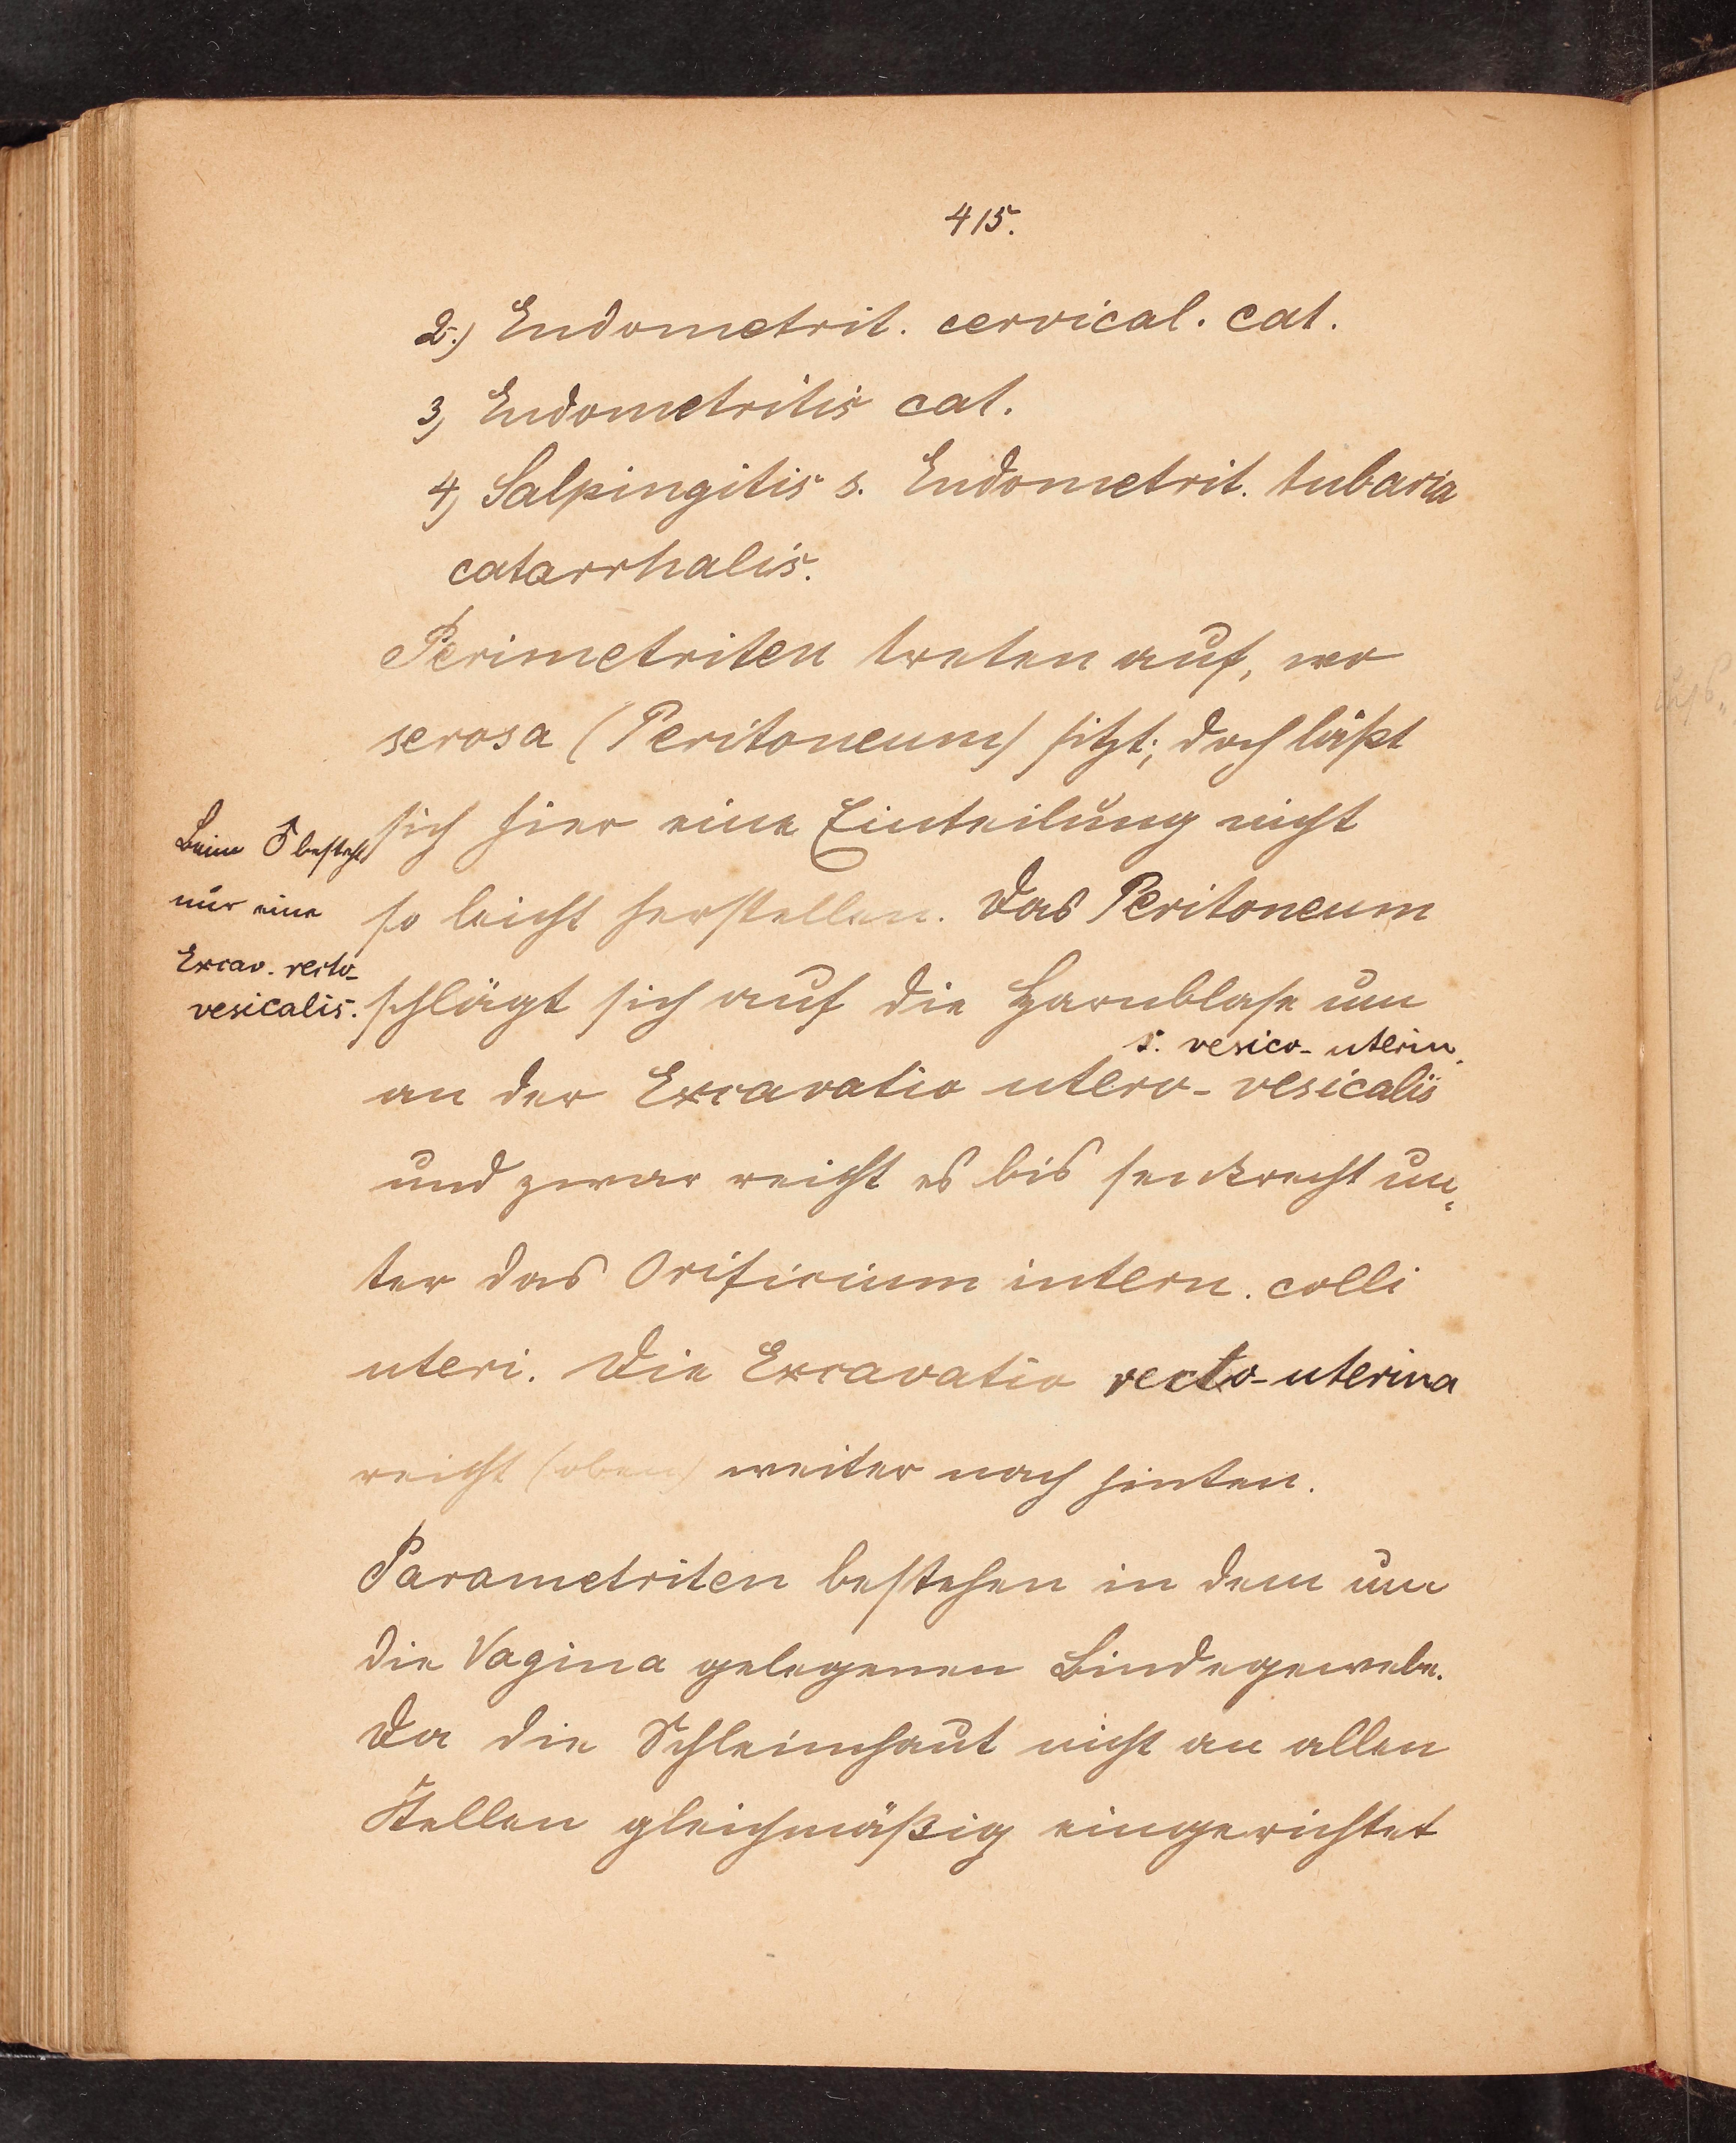 415.
2.) Endometrit. cervical. cat.
3) Endometritis cat.
4) Salpingitis s. Endometrit. tubaria
catarrhalis.
Perimetriten treten auf, wo
serosa (Peritoneum) sitzt; doch läßt
sich hier eine Einteilung nicht
so leicht herstellen. Das Peritoneum
schlägt sich auf die Harnblase um
s. vesico-uterin.
an der Excavatio utero-vesicalis
und zwar reicht es bis senkrecht un-
ter das Orificium intern. colli
uteri. Die Excavatio recto-uterina
reicht (oben) weiter nach hinten.
Parametriten bestehen in dem um
die Vagina gelegenen Bindegewebe.
Da die Schleimhaut nicht an allen
Stellen gleichmäßig eingerichtet
Beim ♂ besteht
nur eine
Excav. recto-
vesicalis.